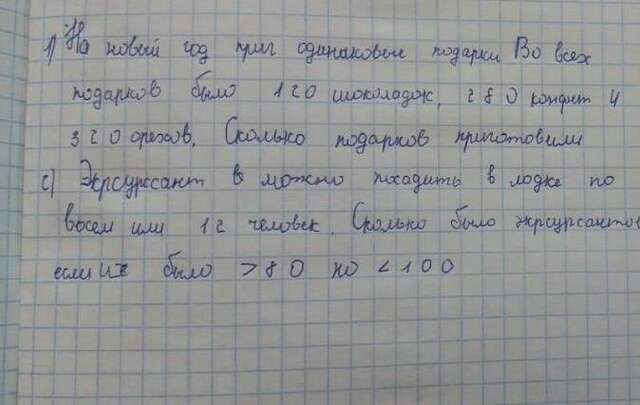 1) На новый год приг одинаковые подарки Во всех
подарков было 120 шоколадок, 280 конфет и
320 орехов. Сколько подарков приготовили
2) Экрсурссант в можно посадить в лодке по
восем или 12 человек. Сколько было экрсурсантов
если их было > 80 но < 100